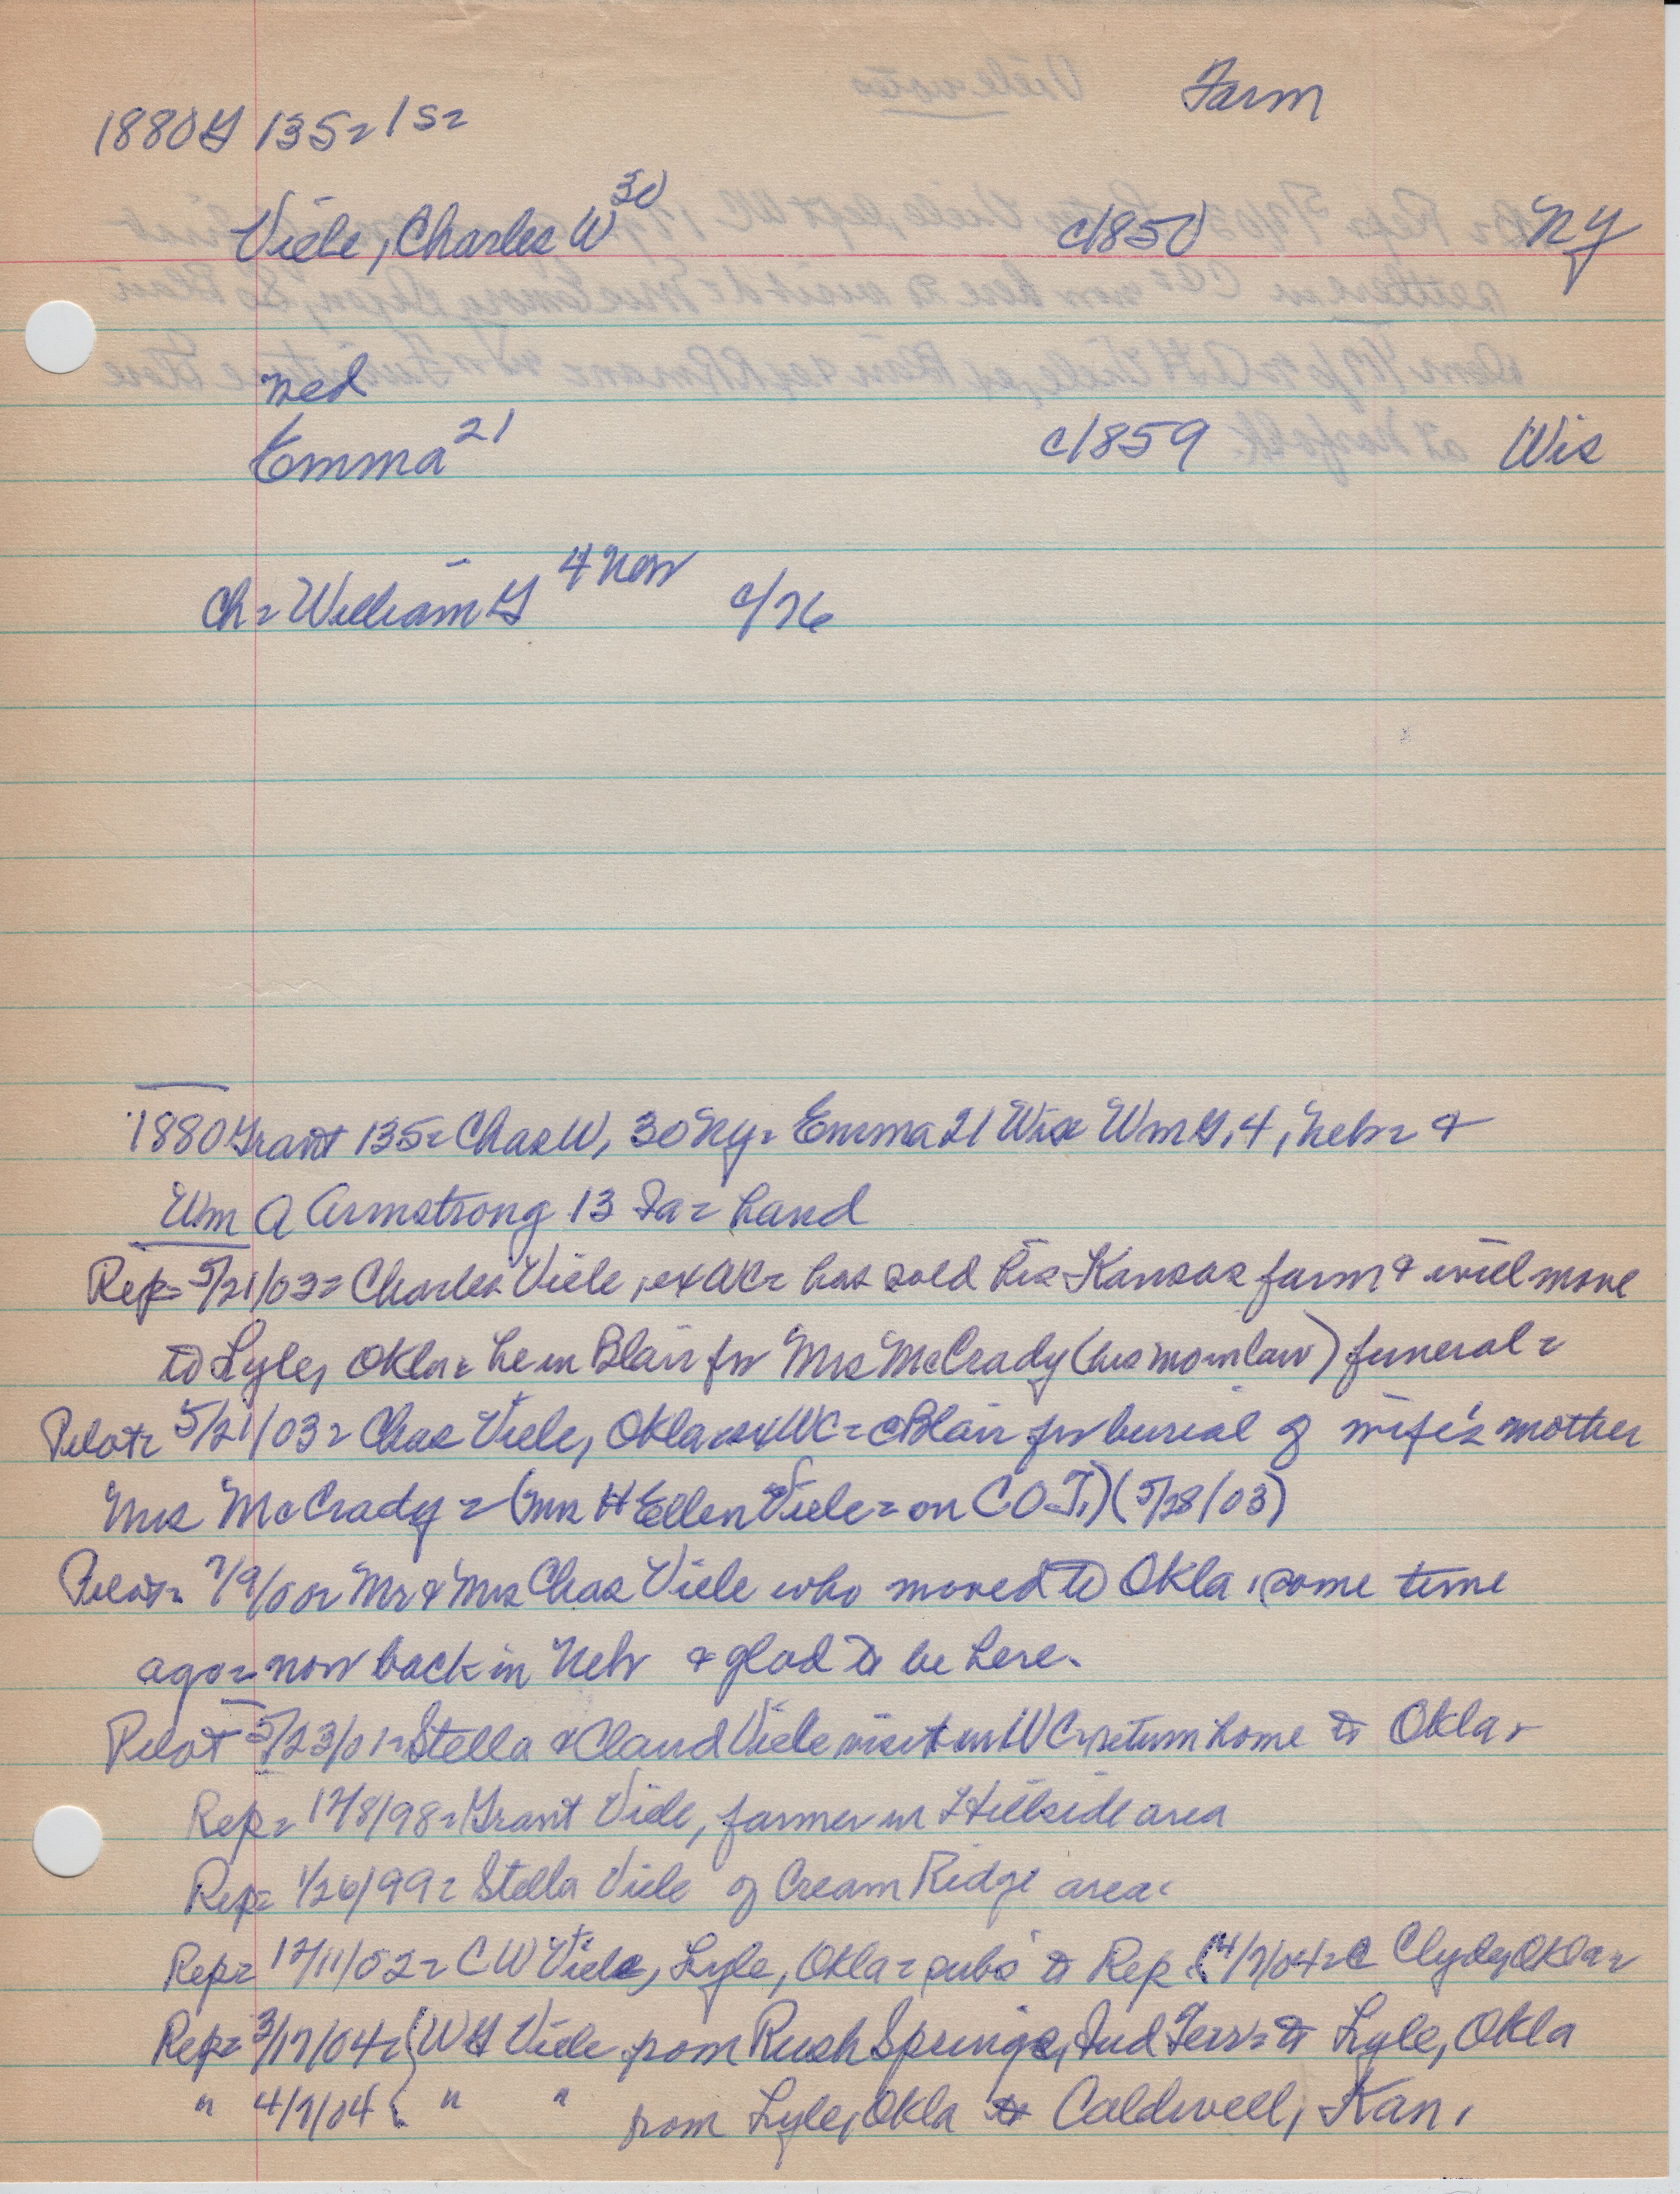 Farm
1880 G 135= 1S=
Viele, Charles W 30 c/1850 NY
med
Emma 21 c/1859 Wis
Ch= William G 4 Nov c/76
1880 Grant 135= Chas W, 30 NY= Emma 21 Wis Wm G, 4, Nebr= &
Wm A Armstrong 13 Ia= hand
Rep= 5/21/03= Charles Viele, ex WC= has sold his Kansas farm & will move
to Lyle, Okla= he in Blair for Mrs McCrady (his mominlaw) funeral=
Pilot= 5/21/03= Chas Viele, Okla ex WC= @ Blair for burial of wife's mother
Mrs McCrady= (mrs H Ellen Viele= on COT.) (5/28/03)
Pilot= Mr & Mrs Chas Viele who moved to Okla, some time
ago= now back in Neb & glad to be here.
Pilot 5/23/01= Stella & Claud Viele visit in WC= return home to Okla=
Rep= 12/8/98= Grant Viele, farmer in Hillside area
Rep= 1/26/99= Stella Viele of Cream Ridge area=
Rep= 12/11/02= C W Viele, Lyle, Okla= subs to Rep (4/7/04= @ Okla=
Rep= 3/17/04= { W G Viele from Rush Springs, Ind Terr= to Lyle, Okla
" 4/7/04 { " " from Lyle, Okla to Caldwell, Kan.